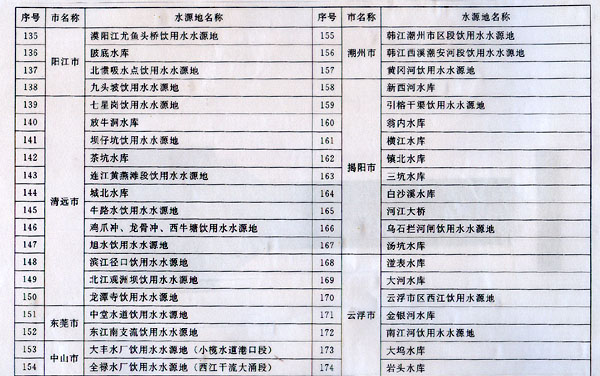 序号 市名称 水源地名称 序号 市名称 水源地名称
135 阳江市 漠阳江尤鱼头桥饮用水水源地 155 潮州市 韩江潮州市区段饮用水水源地
136 陂底水库 156 韩江西溪潮安河段饮用水水源地
137 北惯吸水点饮用水水源地 157 黄冈河饮用水水源地
138 九头坡饮用水水源地 158 揭阳市 新西河水库
139 清远市 七星岗饮用水水源地 159 引榕干渠饮用水水源地
140 放牛洞水库 160 翁内水库
141 坝仔坑饮用水水源地 161 横江水库
142 茶坑水库 162 镇北水库
143 连江黄燕滩段饮用水水源地 163 三坑水库
144 城北水库 164 白沙溪水库
145 牛路水饮用水水源地 165 河江大桥
146 鸡爪冲、龙骨冲、西牛塘饮用水水源地 166 乌石拦河闸饮用水水源地
147 旭水饮用水水源地 167 汤坑水库
148 滨江径口饮用水水源地 168 云浮市 澄表水库
149 北江观洲坝饮用水水源地 169 大河水库
150 龙潭寺饮用水水源地 170 云浮市区西江饮用水水源地
151 东莞市 中堂水道饮用水水源地 171 金银河水库
152 东江南支流饮用水水源地 172 南江河饮用水水源地
153 中山市 大丰水厂饮用水水源地（小榄水道港口段） 173 大坞水库
154 全禄水厂饮用水水源地（西江干流大涌段） 174 岩头水库